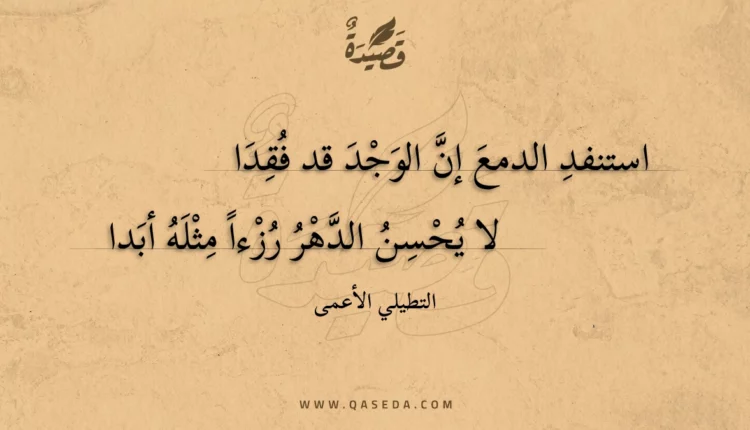 قَصِيدَةٌ
استنفدِ الدمعَ إنَّ الوَجْدَ قد فُقِدَا
لا يُحْسِنُ الدَّهْرُ رُزْءاً مِثْلَهُ أبَدا
التطيلي الأعمى
WWW.QASEDA.COM